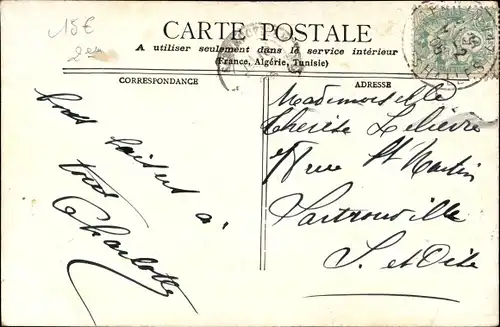 15€
2em
CARTE POSTALE
A utiliser seulement dans le service intérieur
(France, Algérie, Tunisie)
CORRESPONDANCE
ADRESSE
Bons baisers à
tous
Charlotte
Mademoiselle
Thérèse Lelièvre
rue St Martin
Sartrouville
S. et Oise